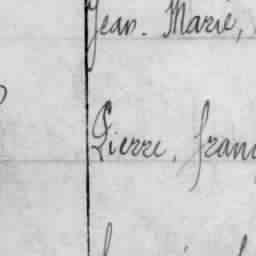 Jean-Marie,
Pierre, Franç